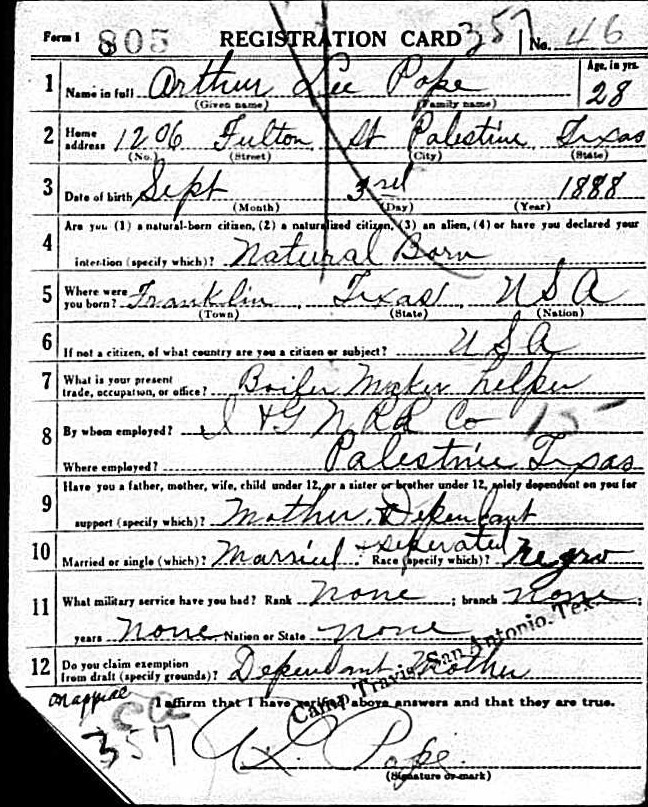 Form 1 805 REGISTRATION CARD 357 No. 46
1 Name in full Arthur Lee Pope Age, in yrs. 28
(Given name) (Family name)
2 Home address 1206 Fulton St Palestine Texas
(No.) (Street) (City) (State)
3 Date of birth Sept 3rd 1888
(Month) (Day) (Year)
Are you (1) a natural-born citizen, (2) a naturalized citizen, (3) an alien, (4) or have you declared your
4 intention (specify which)? Natural Born
5 Where were you born? Franklin, Texas, USA
(Town) (State) (Nation)
6 If not a citizen, of what country are you a citizen or subject? USA
7 What is your present trade, occupation, or office? Boiler Maker helper
8 By whom employed? I & G N RR Co 15
Where employed? Palestine Texas
Have you a father, mother, wife, child under 12, or a sister or brother under 12, solely dependent on you for
9 support (specify which)? Mother, Dependant
10 Married or single (which)? Married & seperated Race (specify which)? Negro
11 What military service have you had? Rank none ; branch none ;
years none Nation or State none
12 Do you claim exemption from draft (specify grounds)? Dependant Mother
Camp Travis, San Antonio, Tex.
on appeal I affirm that I have verified above answers and that they are true.
357 A L. Pope
(Signature or mark)